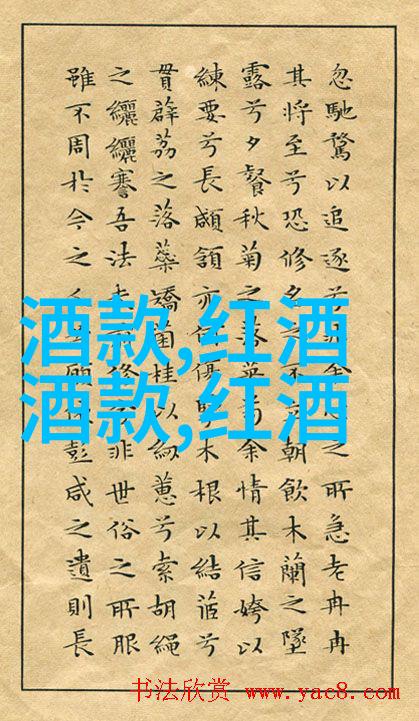 忽馳騖以追逐兮之所急老冉冉
其將至兮恐修名之不朝飲木蘭之墜
露兮夕餐秋菊之落英苟余情其信姱以
練要兮長顑頷亦何傷木根以結茝兮
貫薜荔之落蘂矯菌桂以紉蕙兮索胡繩
之纚纚謇吾法修非世俗之所服
雖不周於今之人願依彭咸之遺則長
酒款,红酒
酒款,红酒
书法欣赏 www.yac8.com